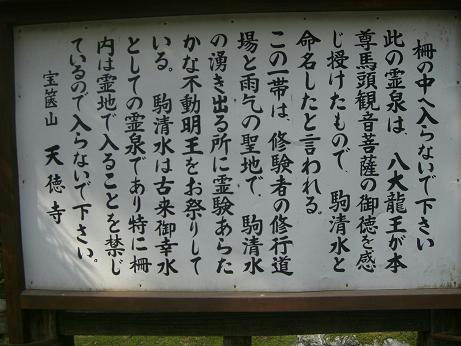 柵の中へ入らないで下さい
此の霊泉は、八大龍王が本
尊馬頭観音菩薩の御徳を感
じ授けたもので、駒清水と
命名したと言われる。
この一帯は、修験者の修行道
場と雨气の聖地で、駒清水
の湧き出る所に霊験あらた
かな不動明王をお祭りして
いる。駒清水は古来御幸水
としての霊泉であり特に柵
内は霊地で入ることを禁じ
ているので入らないで下さい。
宝篋山 天徳寺